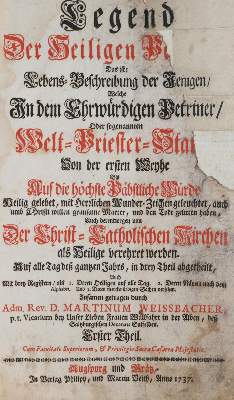 Legend
Der Heiligen
Das ist:
Lebens-Beschreibung der Jenigen/
Welche
In dem Ehrwürdigen Petriner/
Oder sogenannten
Welt-Priester-
Von der ersten Weyhe
Biß
Auf die höchste Päbstliche Würde
Heilig gelebet, mit Herrlichen Wunder-Zeichen geleuchtet, auch
umb Christi willen grausame Marter, und den Tode gelitten haben,
Auch derentwegen in
Der Christ-Catholischen Kirchen
als Heilige verehret werden.
Auf alle Tag des gantzen Jahrs, in drey Theil abgetheilt,
Und
Mit drey Registern / als 1. Deren Heiligen auf alle Tag. 2. Deren Namen nach dem
Alphabet. Und 3. Deren Sachen versehen.
Zusamm getragen durch
Adm. Rev. D. MARTINUM WEISSBACHER,
p.t. Vicarium bey Unser Lieben Frauen in der Alben, deß
Erster Theil.
Cum Facultate Superiorum, & Privilegio Sacrae Caesareae Majestatis.
Augspurg und Grätz,
In Verlag Philipp, und Martin Veith, Anno 1737.